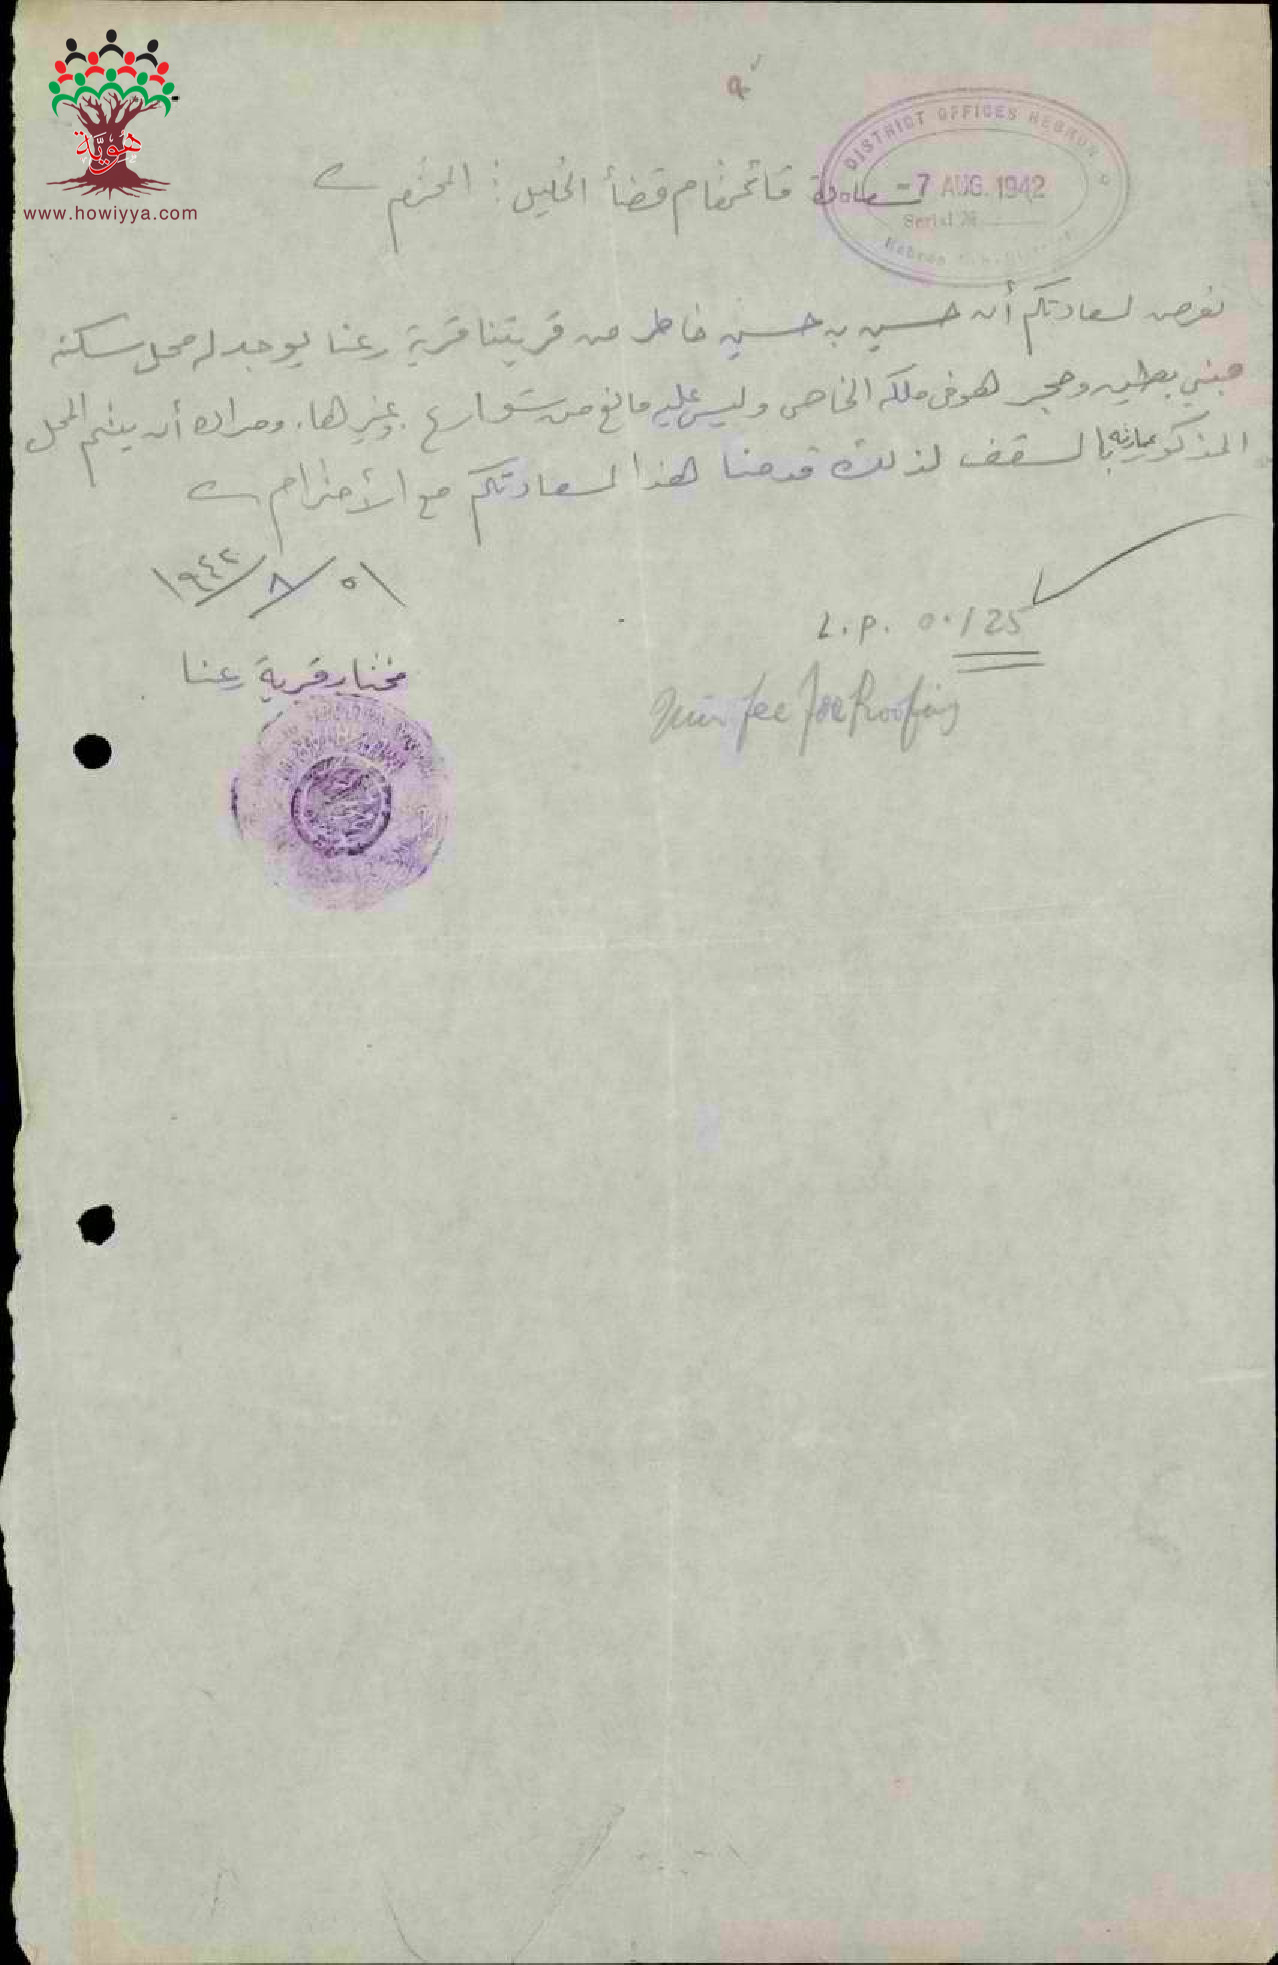 هَوِيَّة
www.howiyya.com
DISTRICT OFFICES HEBRON
-7 AUG. 1942
Serial №
Hebron
سعادة قائمقام قضأ الخليل: المحترم
نعرض لسعادتكم أن حسين بن حسين خاطر من قريتنا قرية رعنا يوجد له محل سكنه
مبني بطين وحجر هو في ملكه الخاص وليس عليه مانع من شوارع وغيرها. ومراده أن يتمم المحل
المذكور عمارته بالسقف لذلك قدمنا هذا لسعادتكم مع الأحترام
١٩٤٢/٨/٥
L.P. 0./25
مختار قرية رعنا
Min fee for Roofing